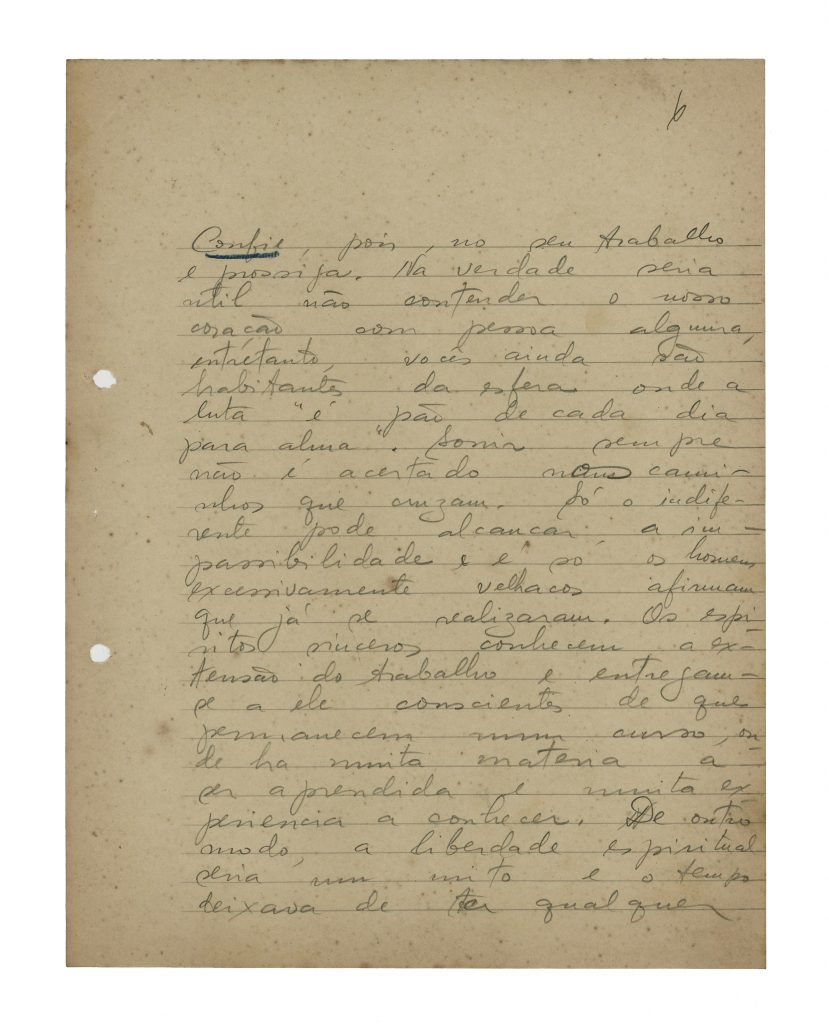 6
Confie, pois, no seu trabalho
e prossiga. Na verdade seria
util não contender o nosso
coração com pessoa alguma,
entretanto, vocês ainda são
habitantes da esfera onde a
luta "é pão de cada dia
para alma". Sorrir sempre
não é acertado nos cami-
nhos que cruzam. Só o indife-
rente pode alcançar a im-
passibilidade e é só os homens
excessivamente velhacos afirmam
que já se realizaram. Os espi-
ritos sinceros conhecem a ex-
tensão do trabalho e entregam-
se a ele conscientes de que
permanecem num curso, on-
de ha muita materia a
ser aprendida e muita ex-
periencia a conhecer. De outro
modo, a liberdade espiritual
seria um mito e o tempo
deixava de ter qualquer